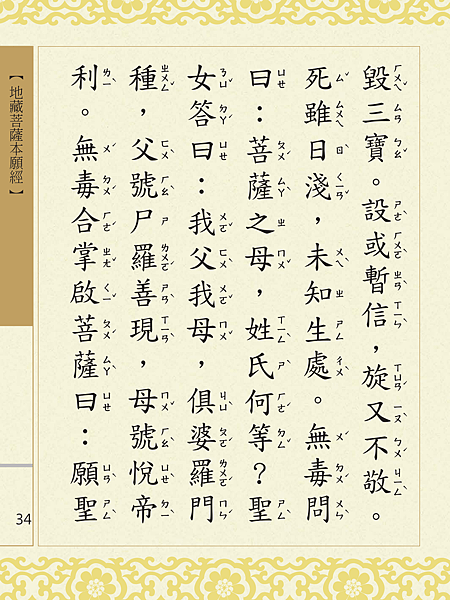 毀三寶。設或暫信，旋又不敬。
死雖日淺，未知生處。無毒問
曰：菩薩之母，姓氏何等？聖
女答曰：我父我母，俱婆羅門
種，父號尸羅善現，母號悅帝
利。無毒合掌啟菩薩曰：願聖
【地藏菩薩本願經】
34